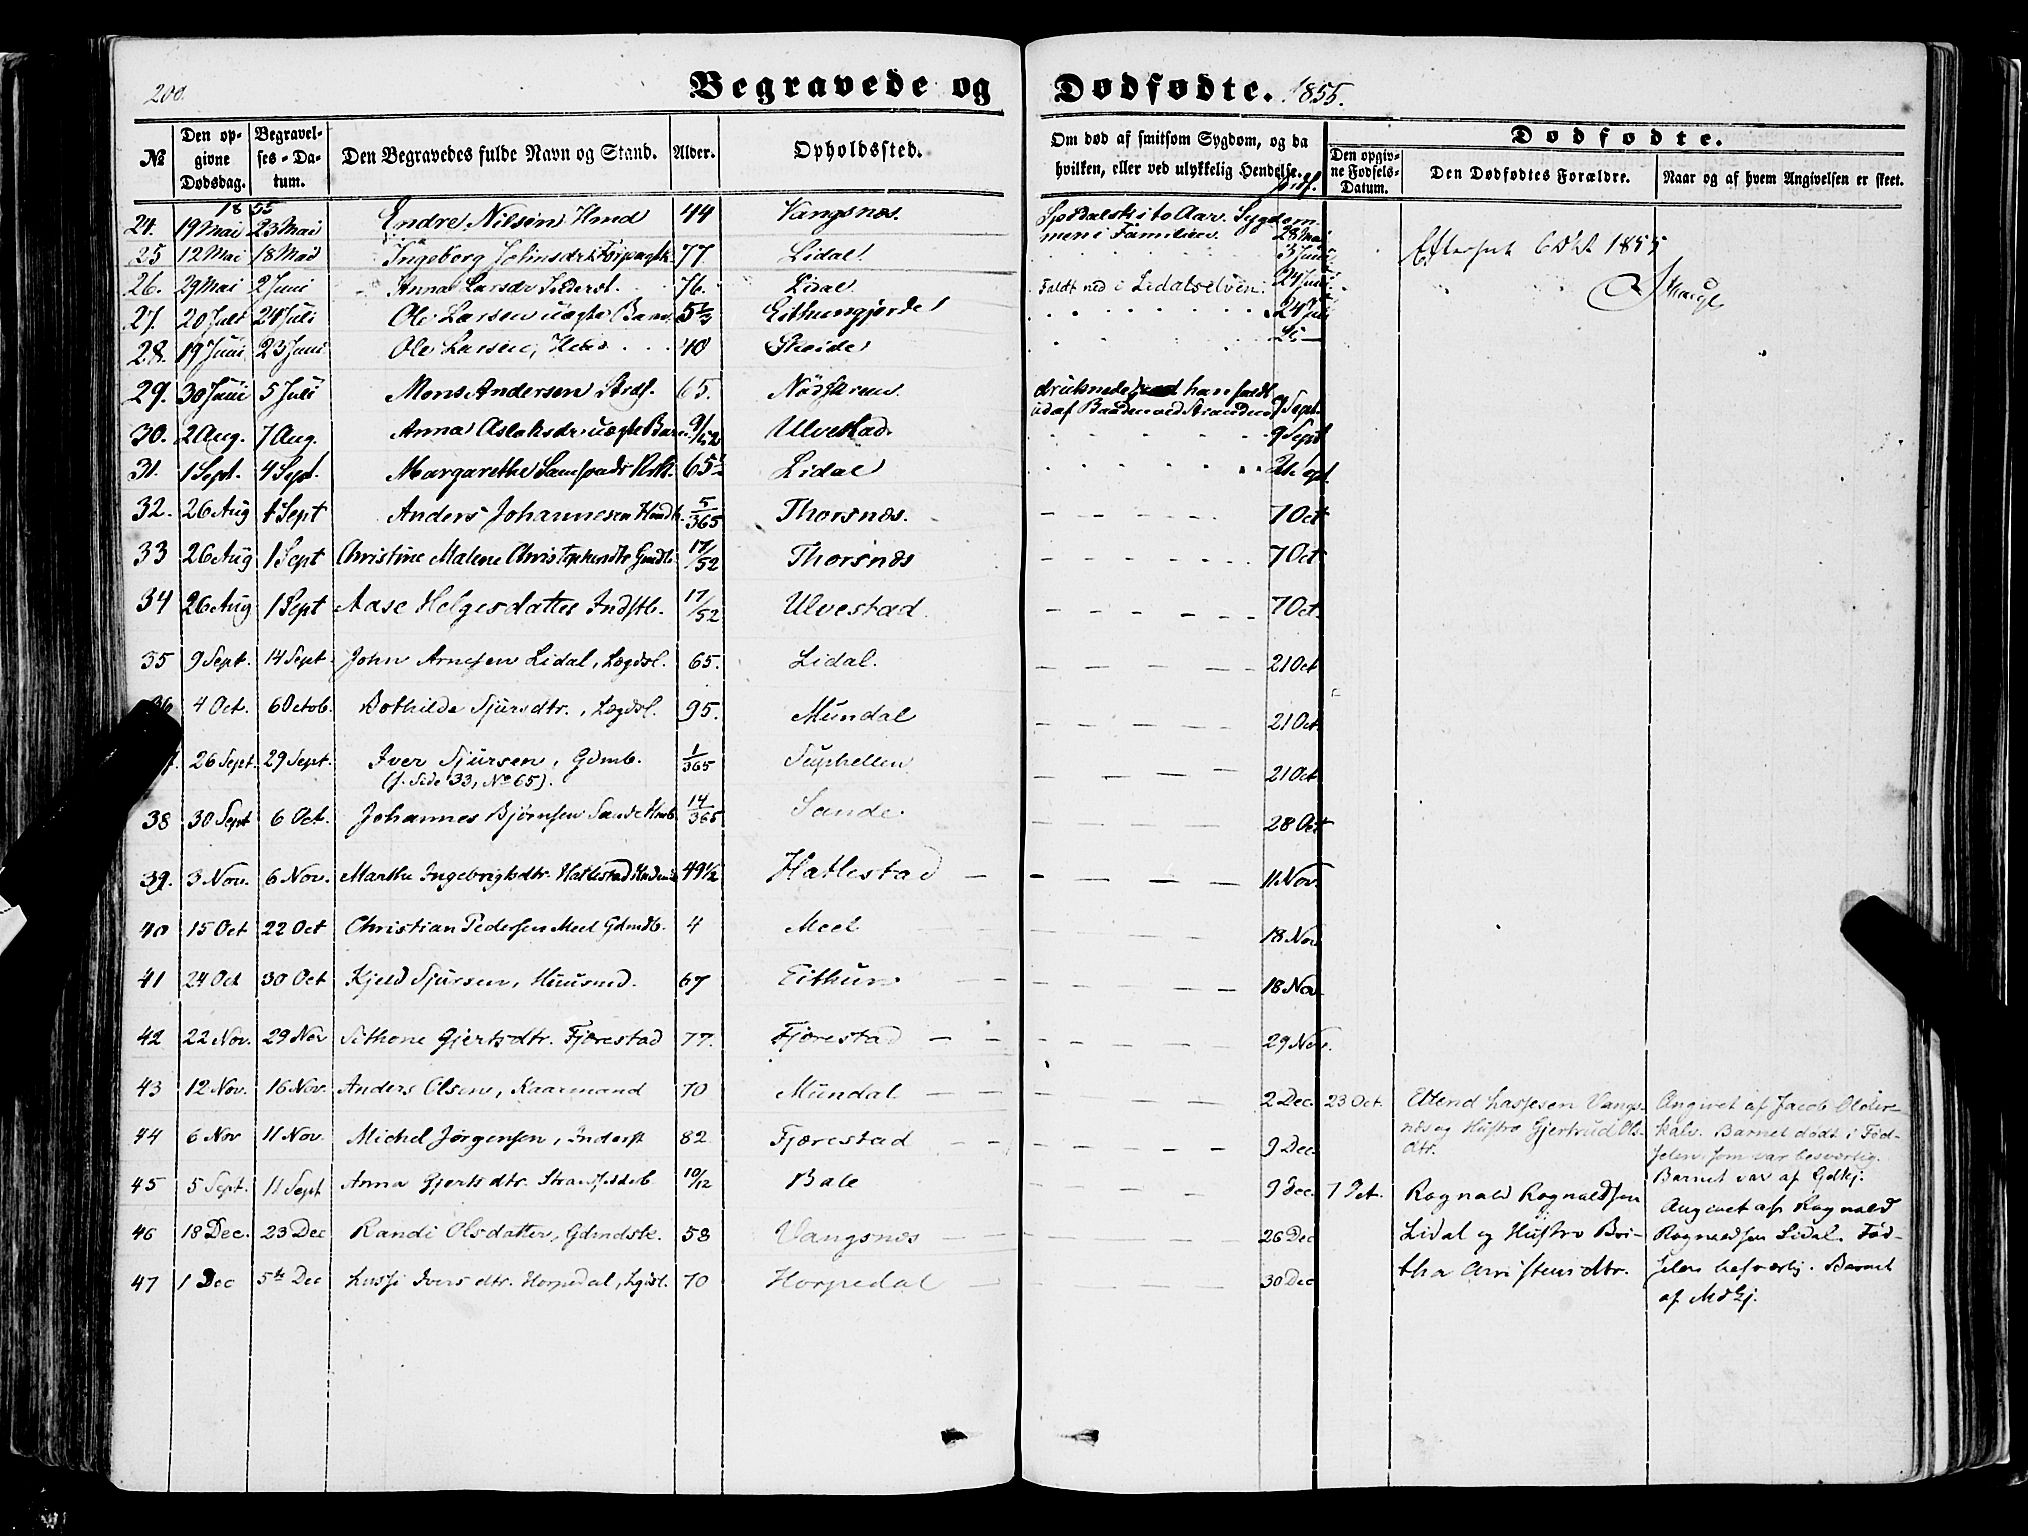 200.
Begravede og Dødfødte. 1855.
№
Den opgivne Dødsdag.
Begravelses-Datum.
Den Begravedes fulde Navn og Stand.
Alder.
Opholdssted.
Om død af smitsom Sygdom, og da hvilken, eller ved ulykkelig Hendelse.
Dødfødte.
Den opgivne Fødsels-Datum.
Den Dødfødtes Forældre.
Naar og af hvem Angivelsen er skeet.
1855
24. 19 Mai 23 Mai Endre Nilsen 44 Vangsnæs. Sygdommen i Familien. 28 Mai
25 12 Mai 18 Mai Ingeborg Johnsdr 77 Lidal 3 Juni
26. 29 Mai 2 Juni Anna Larsdr 76. Lidal 24 Juni
27. 20 Juli 24 Juli Ole Larsen uægte Barn Faldt ned i Lidalselven.
28. 19 Juni 23 Juni Ole Larsen 40
Efterseet 6 Okt 1855
29. 30 Juni 5 Juli Mons Andersen 65. druknede han faldt ud af Baaden ved Stranden 9 Sept.
30. 2 Aug. 7 Aug. Anna Aslaksdr uægte Barn 9/52 Ulvestad 9 Sept
31. 1 Sept. 4 Sept. Margarethe 65½ Lidal
32. 26 Aug 1 Sept Anders Johannesen 5/365 Thorsnæs. 7 Oct
33 26 Aug 1 Sept Christine Malene 17/52 Thorsnæs 7 Oct
34 26 Aug 1 Sept Aase Helgesdatter Indstb. 17/52 Ulvestad 7 Oct.
35 9 Sept. 14 Sept John Arnesen Lidal, Lægdsl. 65. Lidal. 21 Oct
36 4 Oct. 6 Octob. Bothilde Sjursdtr., Lægdsl. 95. Mundal 21 Oct
26 Sept. 29 Sept. Iver Sjursen, Gdmb. 1/365 Suphellen 21 Oct
(s. Side 33, No 65).
38 30 Sept 6 Oct. Johannes Bjørnsen Sande 14/365 Sande 28 Oct
39. 3 Nov. 6 Nov. Marthe Ingebrigtsdtr. Hatlestad 49½ Hatlestad 11 Nov.
40 15 Oct 22 Oct Christian Pedersen Meel Gdmdb. 4 Meel 18 Nov
41 24 Oct 30 Oct Kjeld Sjursen, Huusmd. 67 Eithun 18 Nov
42 22 Nov. 29 Nov Sithone Gjertsdtr. Fjærestad 77. Fjærestad 29 Nov.
43 12 Nov. 16 Nov. Anders Olsen, Kaarmand 70 Mundal 2 Dec.
44 6 Nov 11 Nov. Michel Jørgensen, Inderst 82 Fjærestad 9 Dec.
45 5 Sept. 11 Sept Anna Gjertsdtr. 10/12 Bale 9 Dec.
46 18 Dec. 23 Dec Randi Olsdatter, Gdmdsk. 58 Vangsnæs 26 Dec
47 1 Dec 5te Dec Lussi Iversdtr. Horpedal, Lgdsl. 70 Horpedal 30 Dec
23 Oct. Erlend Lassesen Vangs-
næs og Hustro Gjertrud Ols-
dtr.
Angivet af Jacob Older-
kalv. Barnet dødt i Fød-
selen, som var besværlig.
Barnet var af Qdkj.
1 Oct. Rognald Rognaldsen
Lidal og Hustro Bri-
tha Christensdtr.
Angivet af Rognald
Rognaldsen Lidal. Fød-
selen besværlig. Barnet
af Mdkj.